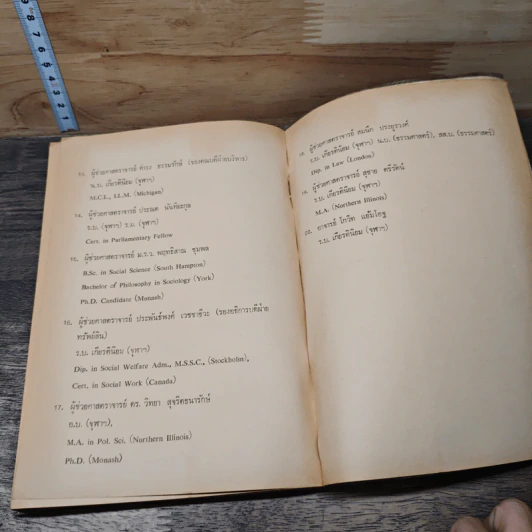 13. ผู้ช่วยศาสตราจารย์ ธรรมรักษ์ (รองคณบดีฝ่ายบริหาร)
น.บ. เกียรตินิยม (จุฬาฯ)
M.C.L., LL.M. (Michigan)
14. ผู้ช่วยศาสตราจารย์ ประณต นันทิยะกุล
ร.บ. (จุฬาฯ) ร.บ. (จุฬาฯ)
Cert. in Parliamentary Fellow
15. ผู้ช่วยศาสตราจารย์ ม.ร.ว. พฤทธิสาณ ชุมพล
B.Sc. in Social Science (South Hampton)
Bachelor of Philosophy in Sociology (York)
Ph.D. Candidate (Monash)
16. ผู้ช่วยศาสตราจารย์ ประพันธ์พงศ์ เวชชาชีวะ (รองอธิการบดีฝ่าย
ทรัพย์สิน)
ร.บ. เกียรตินิยม (จุฬาฯ)
Dip. in Social Welfare Adm., M.S.S.C., (Stockholm),
Cert. in Social Work (Canada)
17. ผู้ช่วยศาสตราจารย์ ดร. วิทยา สุจริตธนารักษ์
(จุฬาฯ),
M.A. in Pol. Sci. (Northern Illinois)
Ph.D. (Monash)
18. ผู้ช่วยศาสตราจารย์ ประยูรวงศ์
ร.บ. เกียรตินิยม (จุฬาฯ) น.บ. (ธรรมศาสตร์), (ธรรมศาสตร์)
Dip. in Law (London)
19. ผู้ช่วยศาสตราจารย์ สุชาย ตรีรัตน์
ร.บ. เกียรตินิยม (จุฬาฯ)
M.A. (Northern Illinois)
20. อาจารย์ โกวิท
ร.บ. เกียรตินิยม (จุฬาฯ)
9 8 7 6 5 4 3 2 1